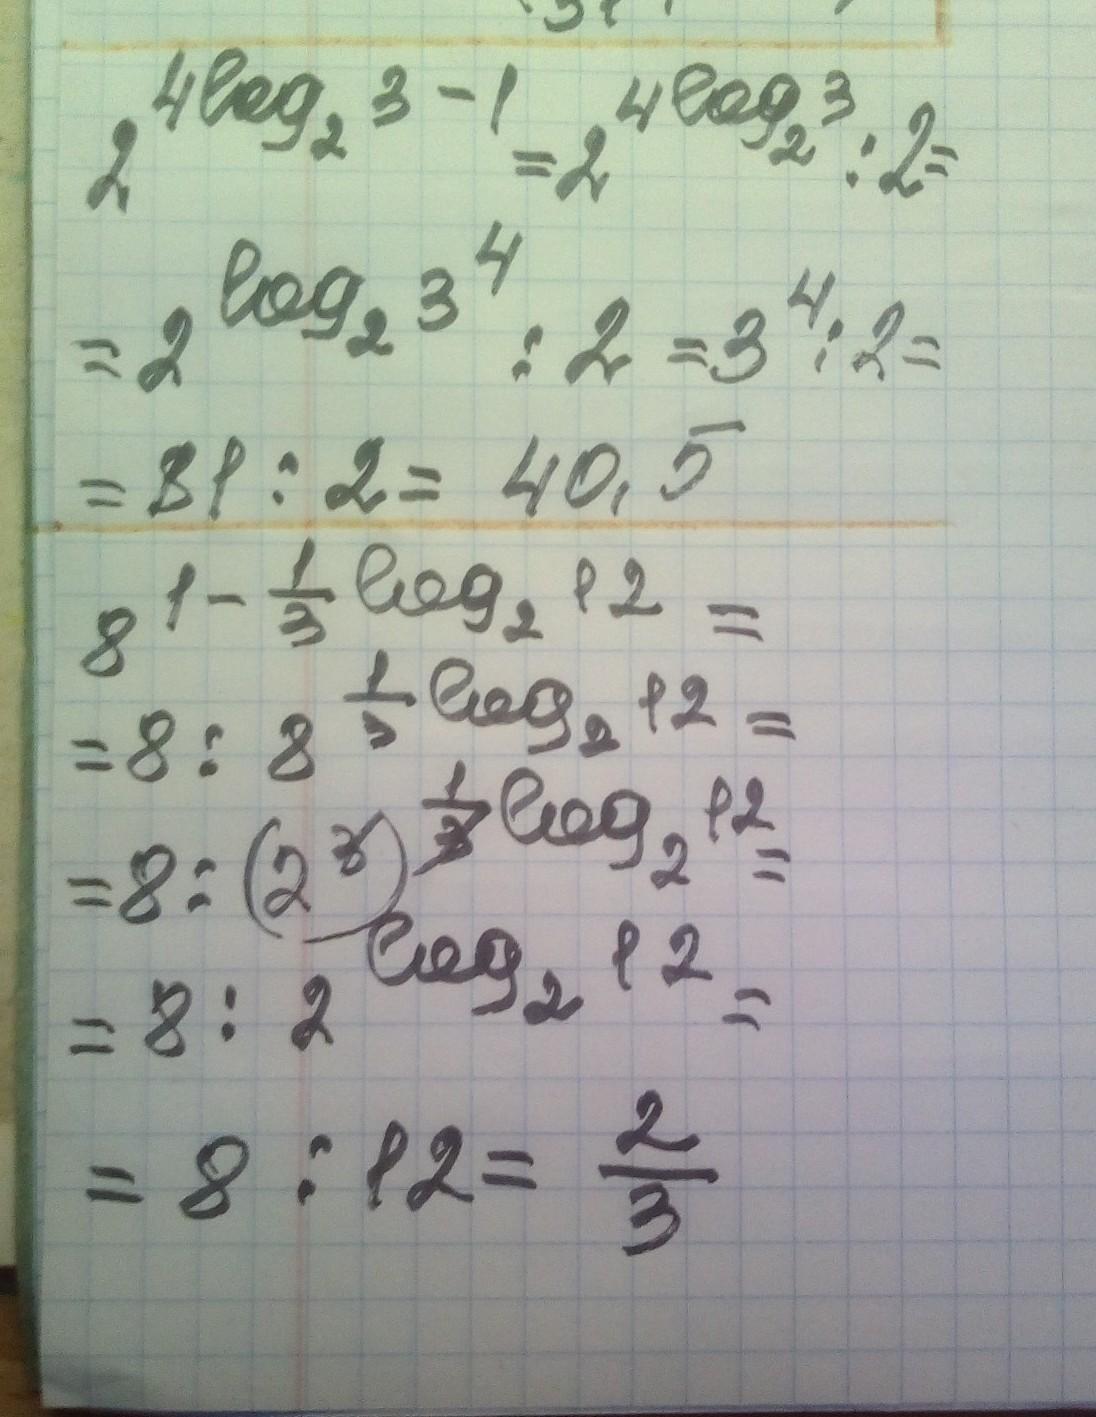 2^(4log₂3-1) = 2^(4log₂3) : 2 =
= 2^(log₂3⁴) : 2 = 3⁴ : 2 =
= 81 : 2 = 40,5
8^(1-1/3 log₂12) =
= 8 : 8^(1/3 log₂12) =
= 8 : (2³)^(1/3 log₂12) =
= 8 : 2^(log₂12) =
= 8 : 12 = 2/3